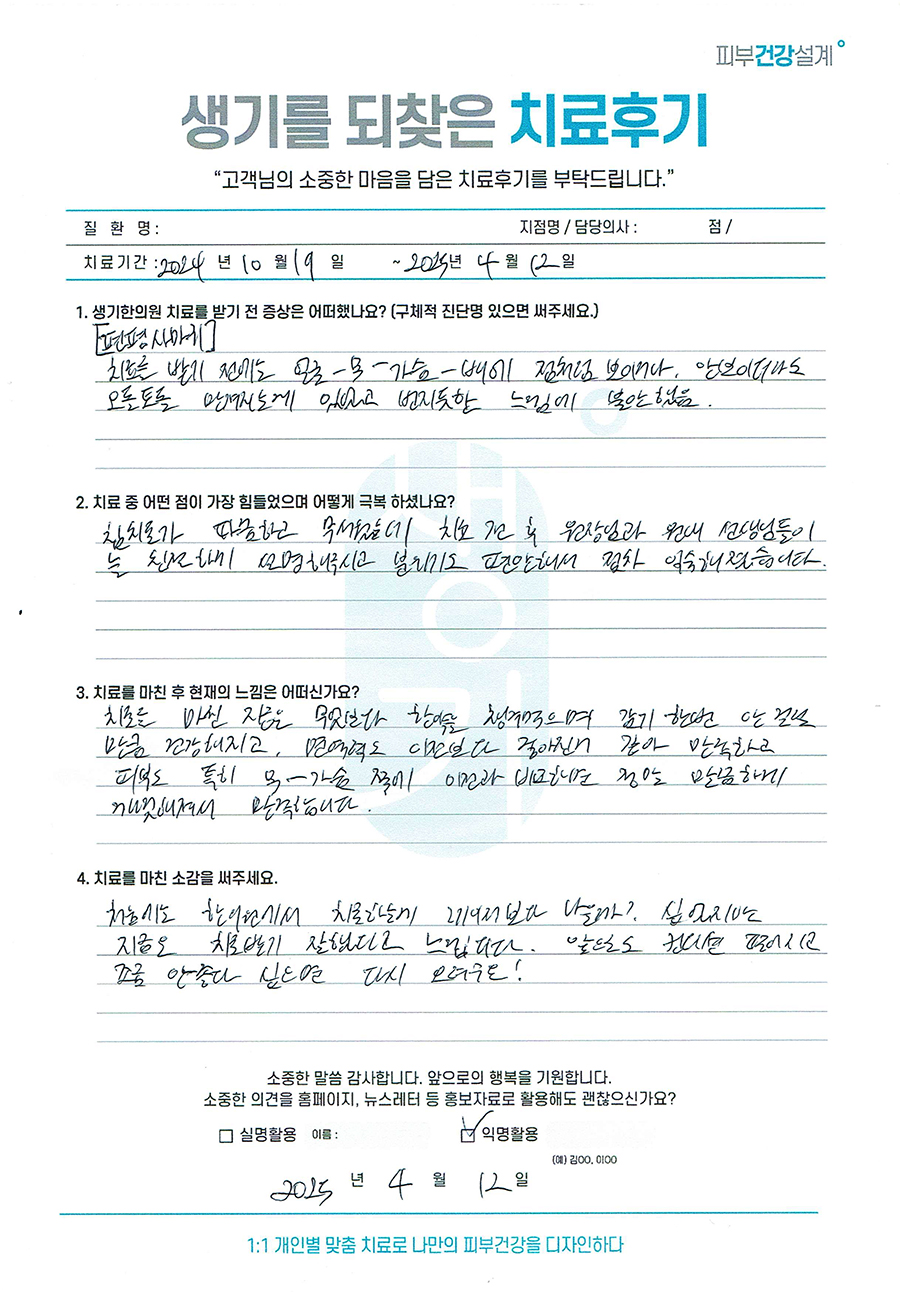 피부건강설계
생기를 되찾은 치료후기
“고객님의 소중한 마음을 담은 치료후기를 부탁드립니다.”
질 환 명 : 지점명 / 담당의사 : 점 /
치료기간 : 2024 년 10 월 19 일 ~ 2025년 4 월 12 일
1. 생기한의원 치료를 받기 전 증상은 어떠했나요? (구체적 진단명 있으면 써주세요.)
[편평사마귀]
치료를 받기 전에는 얼굴-목-가슴-배에 점처럼 보이거나, 안보이더라도
오돌토돌 만져지는게 있었고 번지듯한 느낌에 불안했음.
2. 치료 중 어떤 점이 가장 힘들었으며 어떻게 극복 하셨나요?
침치료가 따끔하고 무서웠는데 치료 전 후 원장님과 원내 선생님들이
늘 친절하게 설명해주시고 분위기도 편안해서 점차 익숙해졌습니다.
3. 치료를 마친 후 현재의 느낌은 어떠신가요?
치료를 마친 지금은 무엇보다 한약을 챙겨먹으며 감기 한번 안 걸릴
만큼 건강해지고, 면역력도 이전보다 좋아진거 같아 만족하고
피부도 특히 목-가슴 쪽이 이전과 비교하면 정말 만큼하게
깨끗해져서 만족합니다.
4. 치료를 마친 소감을 써주세요.
처음에는 한의원에서 치료하는게 레이저보다 나을까? 싶었지만
지금은 치료받기 잘했다고 느낍니다. 앞으로도 컨디션 떨어지고
조금 안좋다 싶으면 다시 오려구요!
생기
소중한 말씀 감사합니다. 앞으로의 행복을 기원합니다.
소중한 의견을 홈페이지, 뉴스레터 등 홍보자료로 활용해도 괜찮으신가요?
실명활용 이름 : 익명활용
(예) 김OO, 이OO
2025 년 4 월 12 일
1:1 개인별 맞춤 치료로 나만의 피부건강을 디자인하다